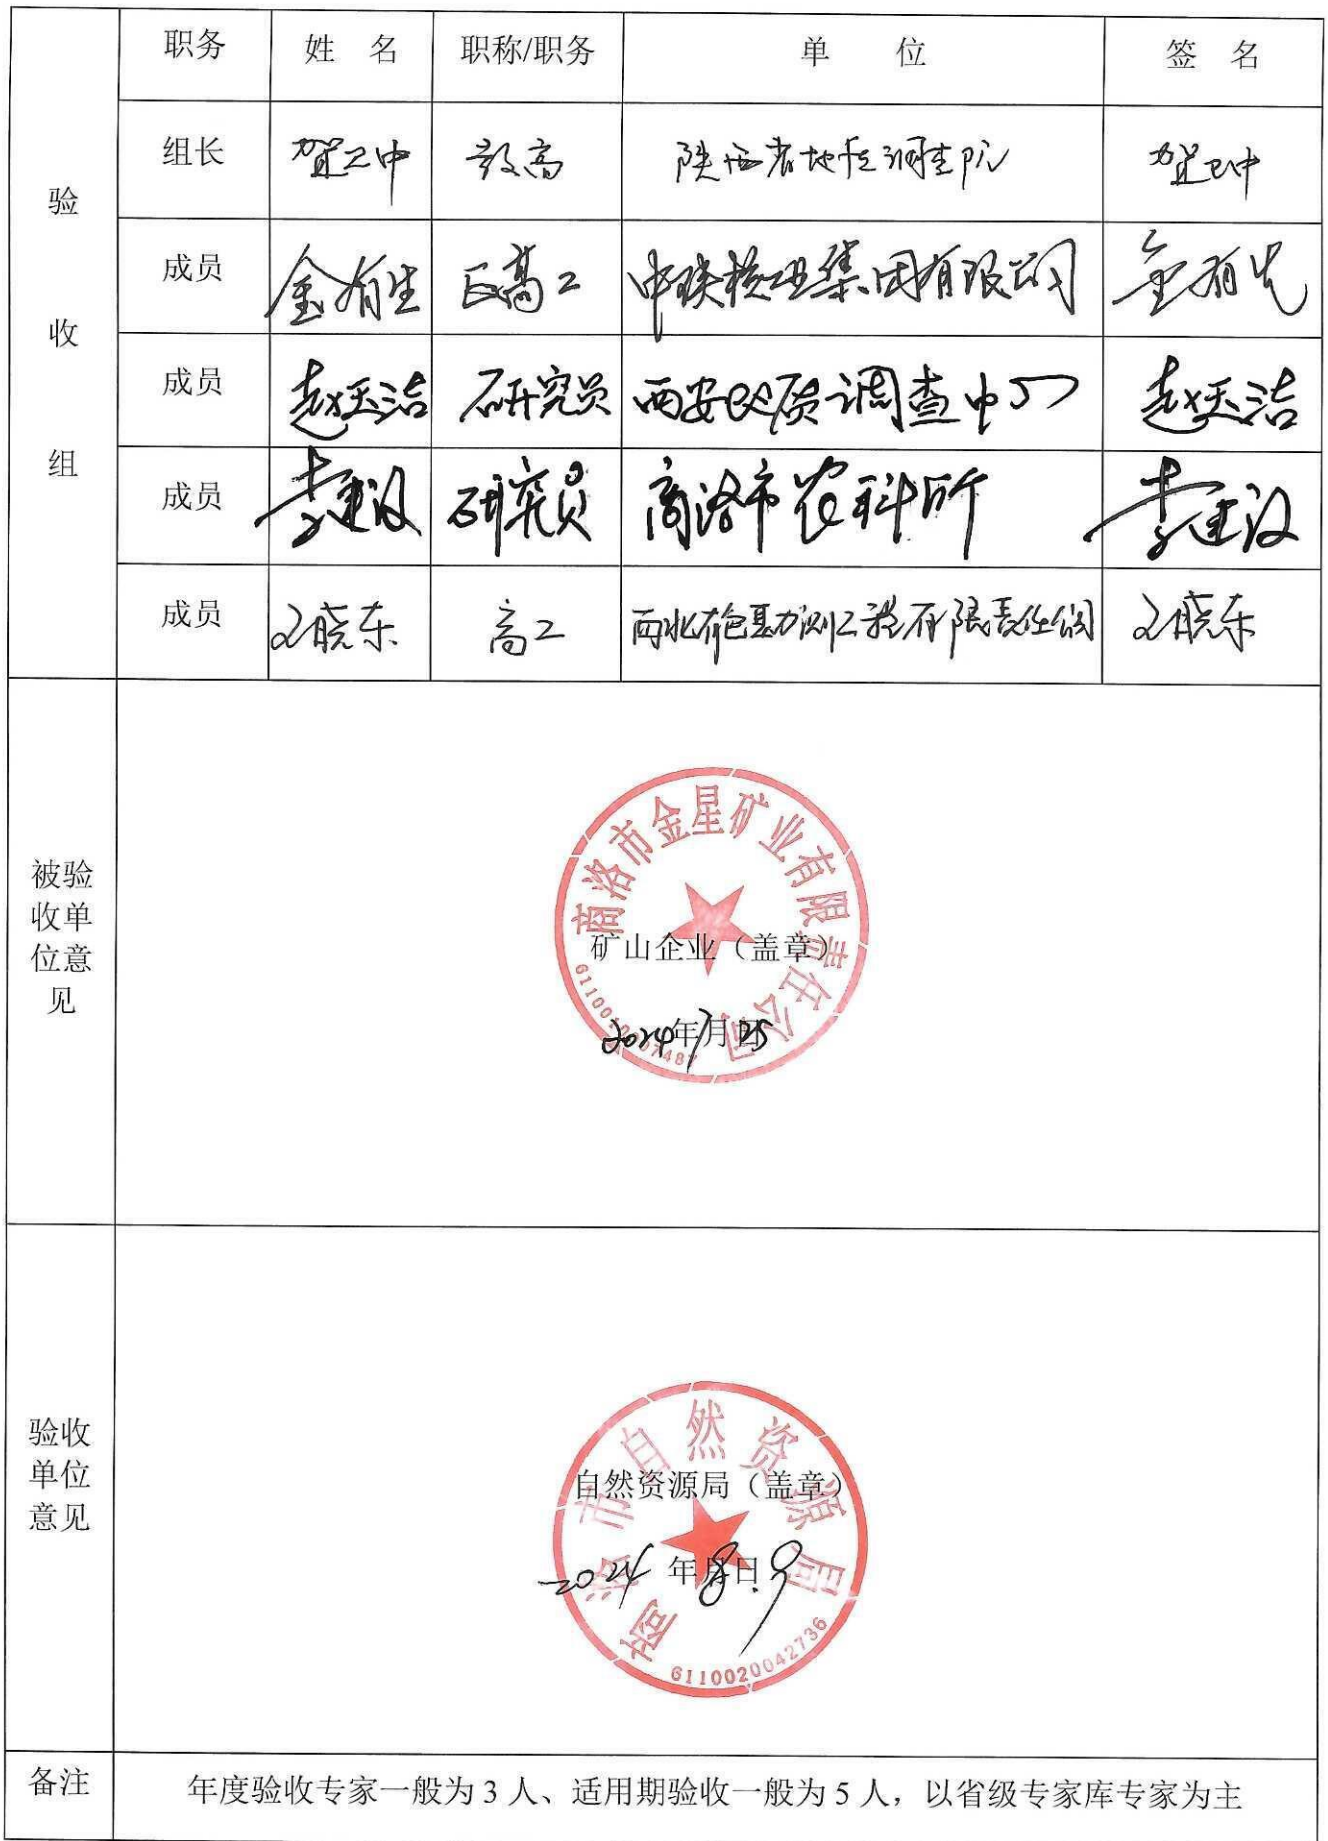 职务 姓 名 职称/职务 单 位 签 名
验收组
组长 贺卫中 教高 陕西省地质调查院 贺卫中
成员 金有生 正高工 中陕核工业集团有限公司 金有生
成员 赵玉洁 研究员 西安地质调查中心 赵玉洁
成员 李建设 研究员 商洛市农科所 李建设
成员 晓东 高工 西北有色勘测工程有限责任公司 晓东
被验收单位意见
商洛市金星矿业有限责任公司
矿山企业（盖章）
2024年7月25日
验收单位意见
商洛市自然资源局
自然资源局（盖章）
2024年8月9日
6110020042736
备注 年度验收专家一般为 3 人、适用期验收一般为 5 人，以省级专家库专家为主